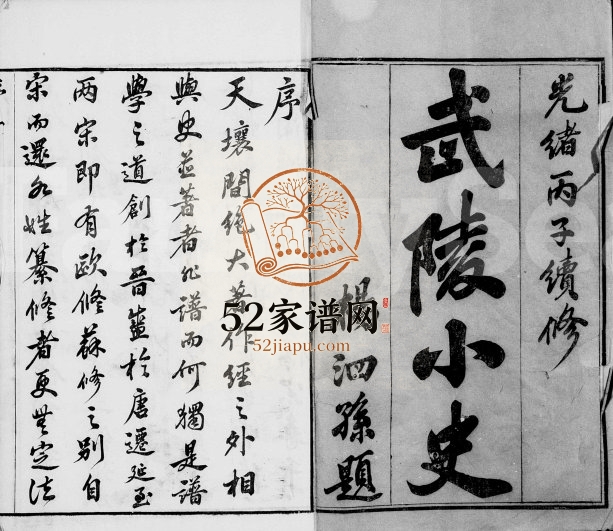 光緒丙子續修
武陵小史
楊泗孫題
序
天壤間絶大著作經之外相
與史並著者非譜而何獨是譜
學之道創於晉盛於唐遷延至
兩宋即有歐修蘇修之別自
宋而還各姓纂修者更無定法
52家谱网
52jiapu.com